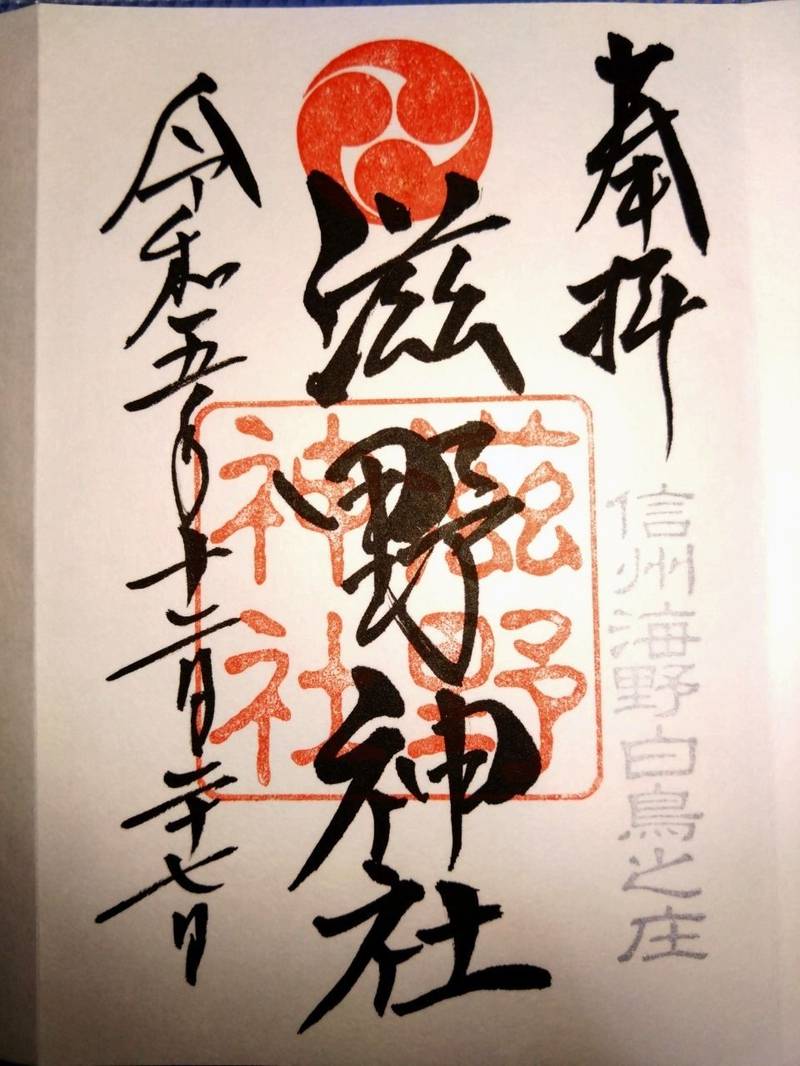 奉拝
信州海野白鳥之庄
滋野神社
滋野
神社
令和五年十二月二十七日